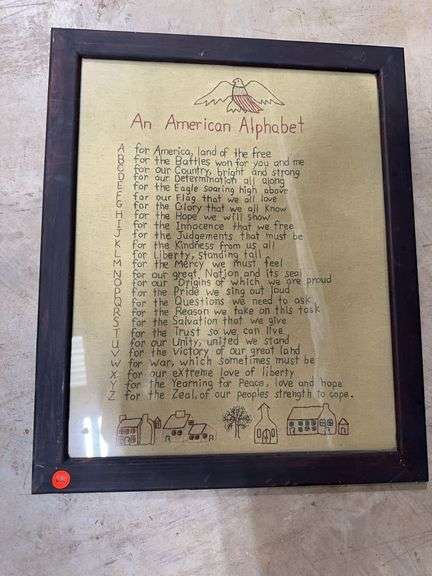 An American Alphabet
A for America, land of the free
B for the Battles won for you and me
C for our Country, bright and strong
D for our Determination all along
E for the Eagle soaring high above
F for our Flag that we all love
G for the Glory that we all know
H for the Hope we will show
I for the Innocence that we free
J for the Judgements that must be
K for the Kindness from us all
L for Liberty, standing tall
M for the Mercy we must feel
N for our great Nation and its seal
O for our Origins of which we are proud
P for the Pride we sing out loud
Q for the Questions we need to ask
R for the Reason we take on this task
S for the Salvation that we give
T for the Trust so we can live
U for our Unity, united we stand
V for the Victory of our great land
W for War, which sometimes must be
X for our eXtreme love of liberty
Y for the Yearning for Peace, love and hope
Z for the Zeal, of our peoples strength to cope.